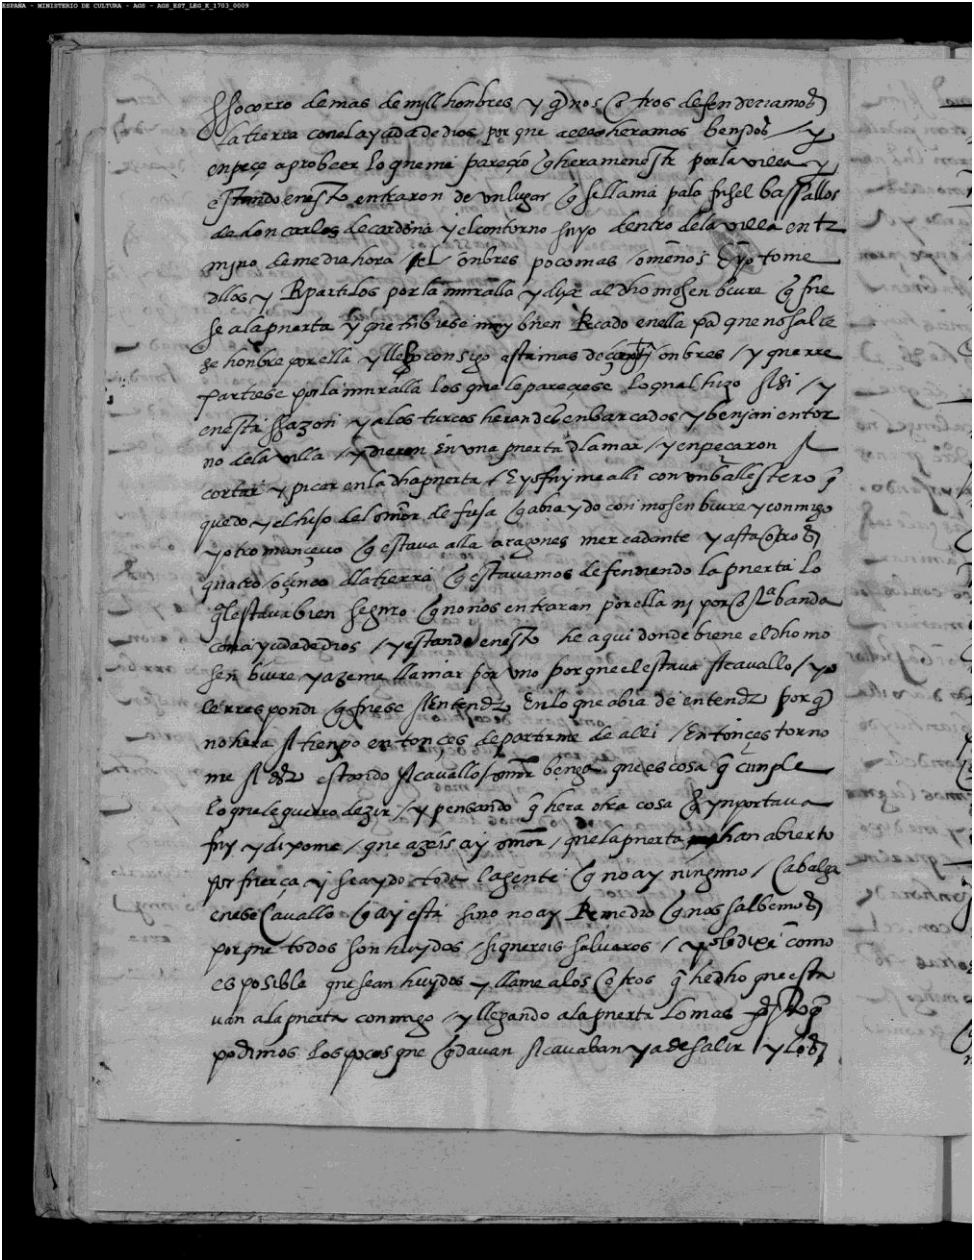 ESPAÑA - MINISTERIO DE CULTURA - AGS - AGS_EST_LEG_K_1703_0009
ssocorro de mas de mill honbres y q̃ nosotros defenderiamos
la tierra con el ayuda de dios por que heramos benidos / y
enpeçe a probeer lo que me pareçio q̃ hera menestr por la villa y
estando enesto entraron de un lugar q̃ se llama palafrisel bassallos
de don carlos de cardona y el contorno suyo dentro dela villa en tr
mino de media hora onbres poco mas o menos E yo tome
dllos y Repartilos por la muralla y dixe al dho mosen biure q̃ fue
se a la puerta y que tubiese muy buen Recado en ella pa que no salie
se honbre por ella y llebo consigo estri mas de onbres / y que rre
partiese por la muralla los que le pareçiese lo qual hizo Asi / y
enesta ssazon ya los turcos heran desenbarcados y benian en tor
no dela villa / y dieron En una puerta dla mar / y enpeçaron A
cortar y picar en la dha puerta / E yo fuyme alli con un ballestero q̃
quedo y el hijo del de fusa q̃ abia ydo con mosen biure y conmigo
y otro mançevo q̃ estava alla aragones mercadante y asta otros
quatro o çinco dla tierra q̃ estavamos defendiendo la puerta lo
ql estava bien seguro q̃ no nos entraran por ella ni por otra banda
con ayuda de dios / y estando enesto he aqui donde biene el dho mo
sen biure y azeme llamar por uno por que el estava A cavallo / yo
le rrespondi q̃ fuese A Entendr En lo que abia de entendr por q̃
no hera A tienpo entonçes de partirme de alli / Entonçes torno
me A dzr estando A cavallo / señor benga que es cosa q̃ cunple
lo que le quiero dezir / y pensando q̃ hera otra cosa q̃ ynportava
fuy y dixome / que azeis ay señor / que la puerta han abierto
por fuerça y se a ydo toda la gente q̃ no ay ninguno / Cabalga
en ese Cavallo q̃ ay esta sino no ay Remedio q̃ nos salbemos
por que todos son huydos / si quereis salvaros / yo le dixe como
es posible que sean huydos y llame a los otros q̃ he dho que esta
van a la puerta conmigo / y llegando a la puerta lo mas presto q̃
podimos los pocos que q̃davan Acavaban ya de salir / y los